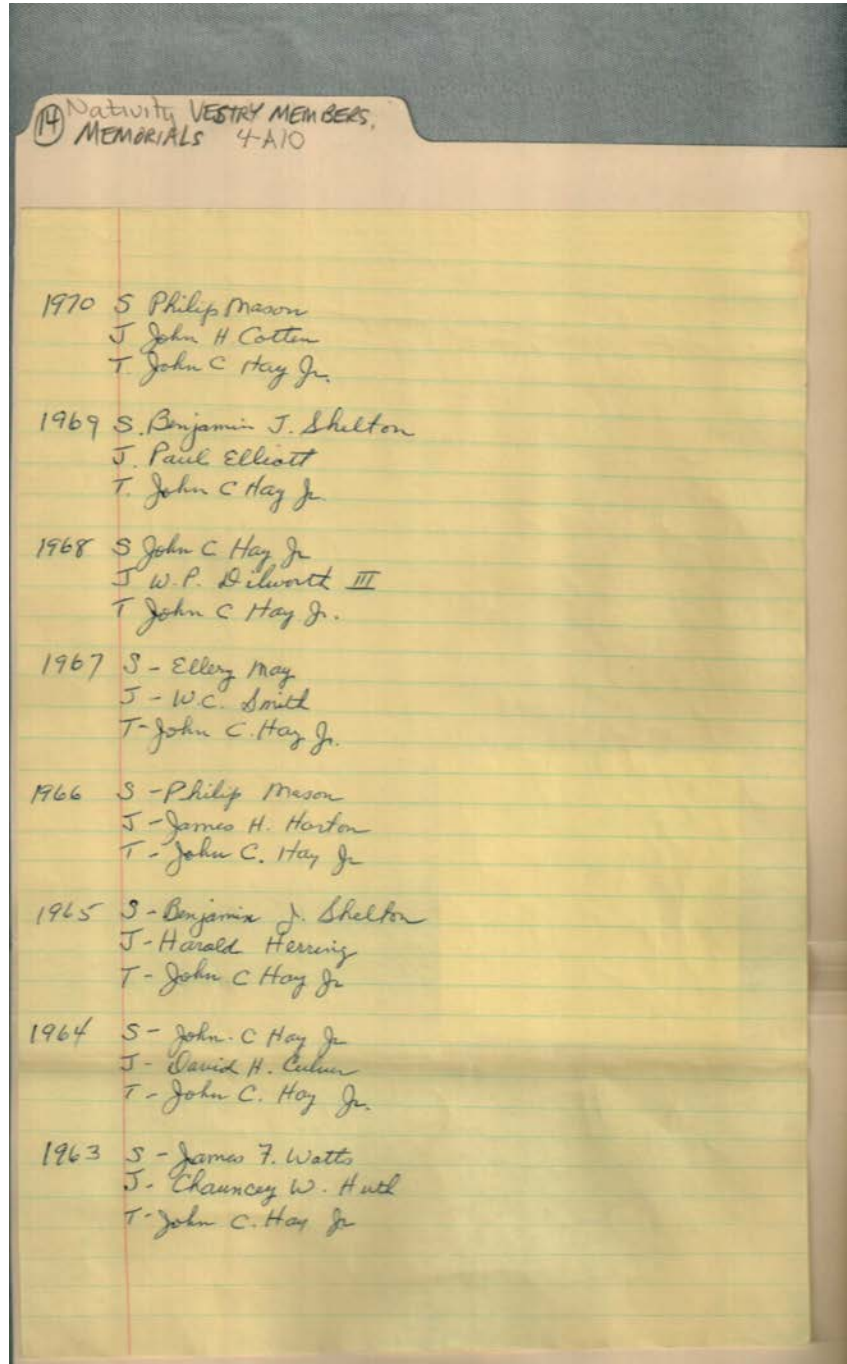 14 Nativity VESTRY MEMBERS,
MEMORIALS 4-A10
1970 S Philip Mason
J John H Cotten
T. John C Hay Jr.
1969 S. Benjamin J. Shelton
J. Paul Elliott
T. John C Hay Jr.
1968 S John C Hay Jr
J W.P. Dilworth III
T John C Hay Jr.
1967 S - Ellery May
J - W.C. Smith
T - John C. Hay Jr.
1966 S - Philip Mason
J - James H. Horton
T - John C. Hay Jr
1965 S - Benjamin J. Shelton
J - Harold Herring
T - John C Hay Jr
1964 S - John C Hay Jr
J - David H. Culver
T - John C. Hay Jr.
1963 S - James F. Watts
J - Chauncey W. Huth
T - John C. Hay Jr